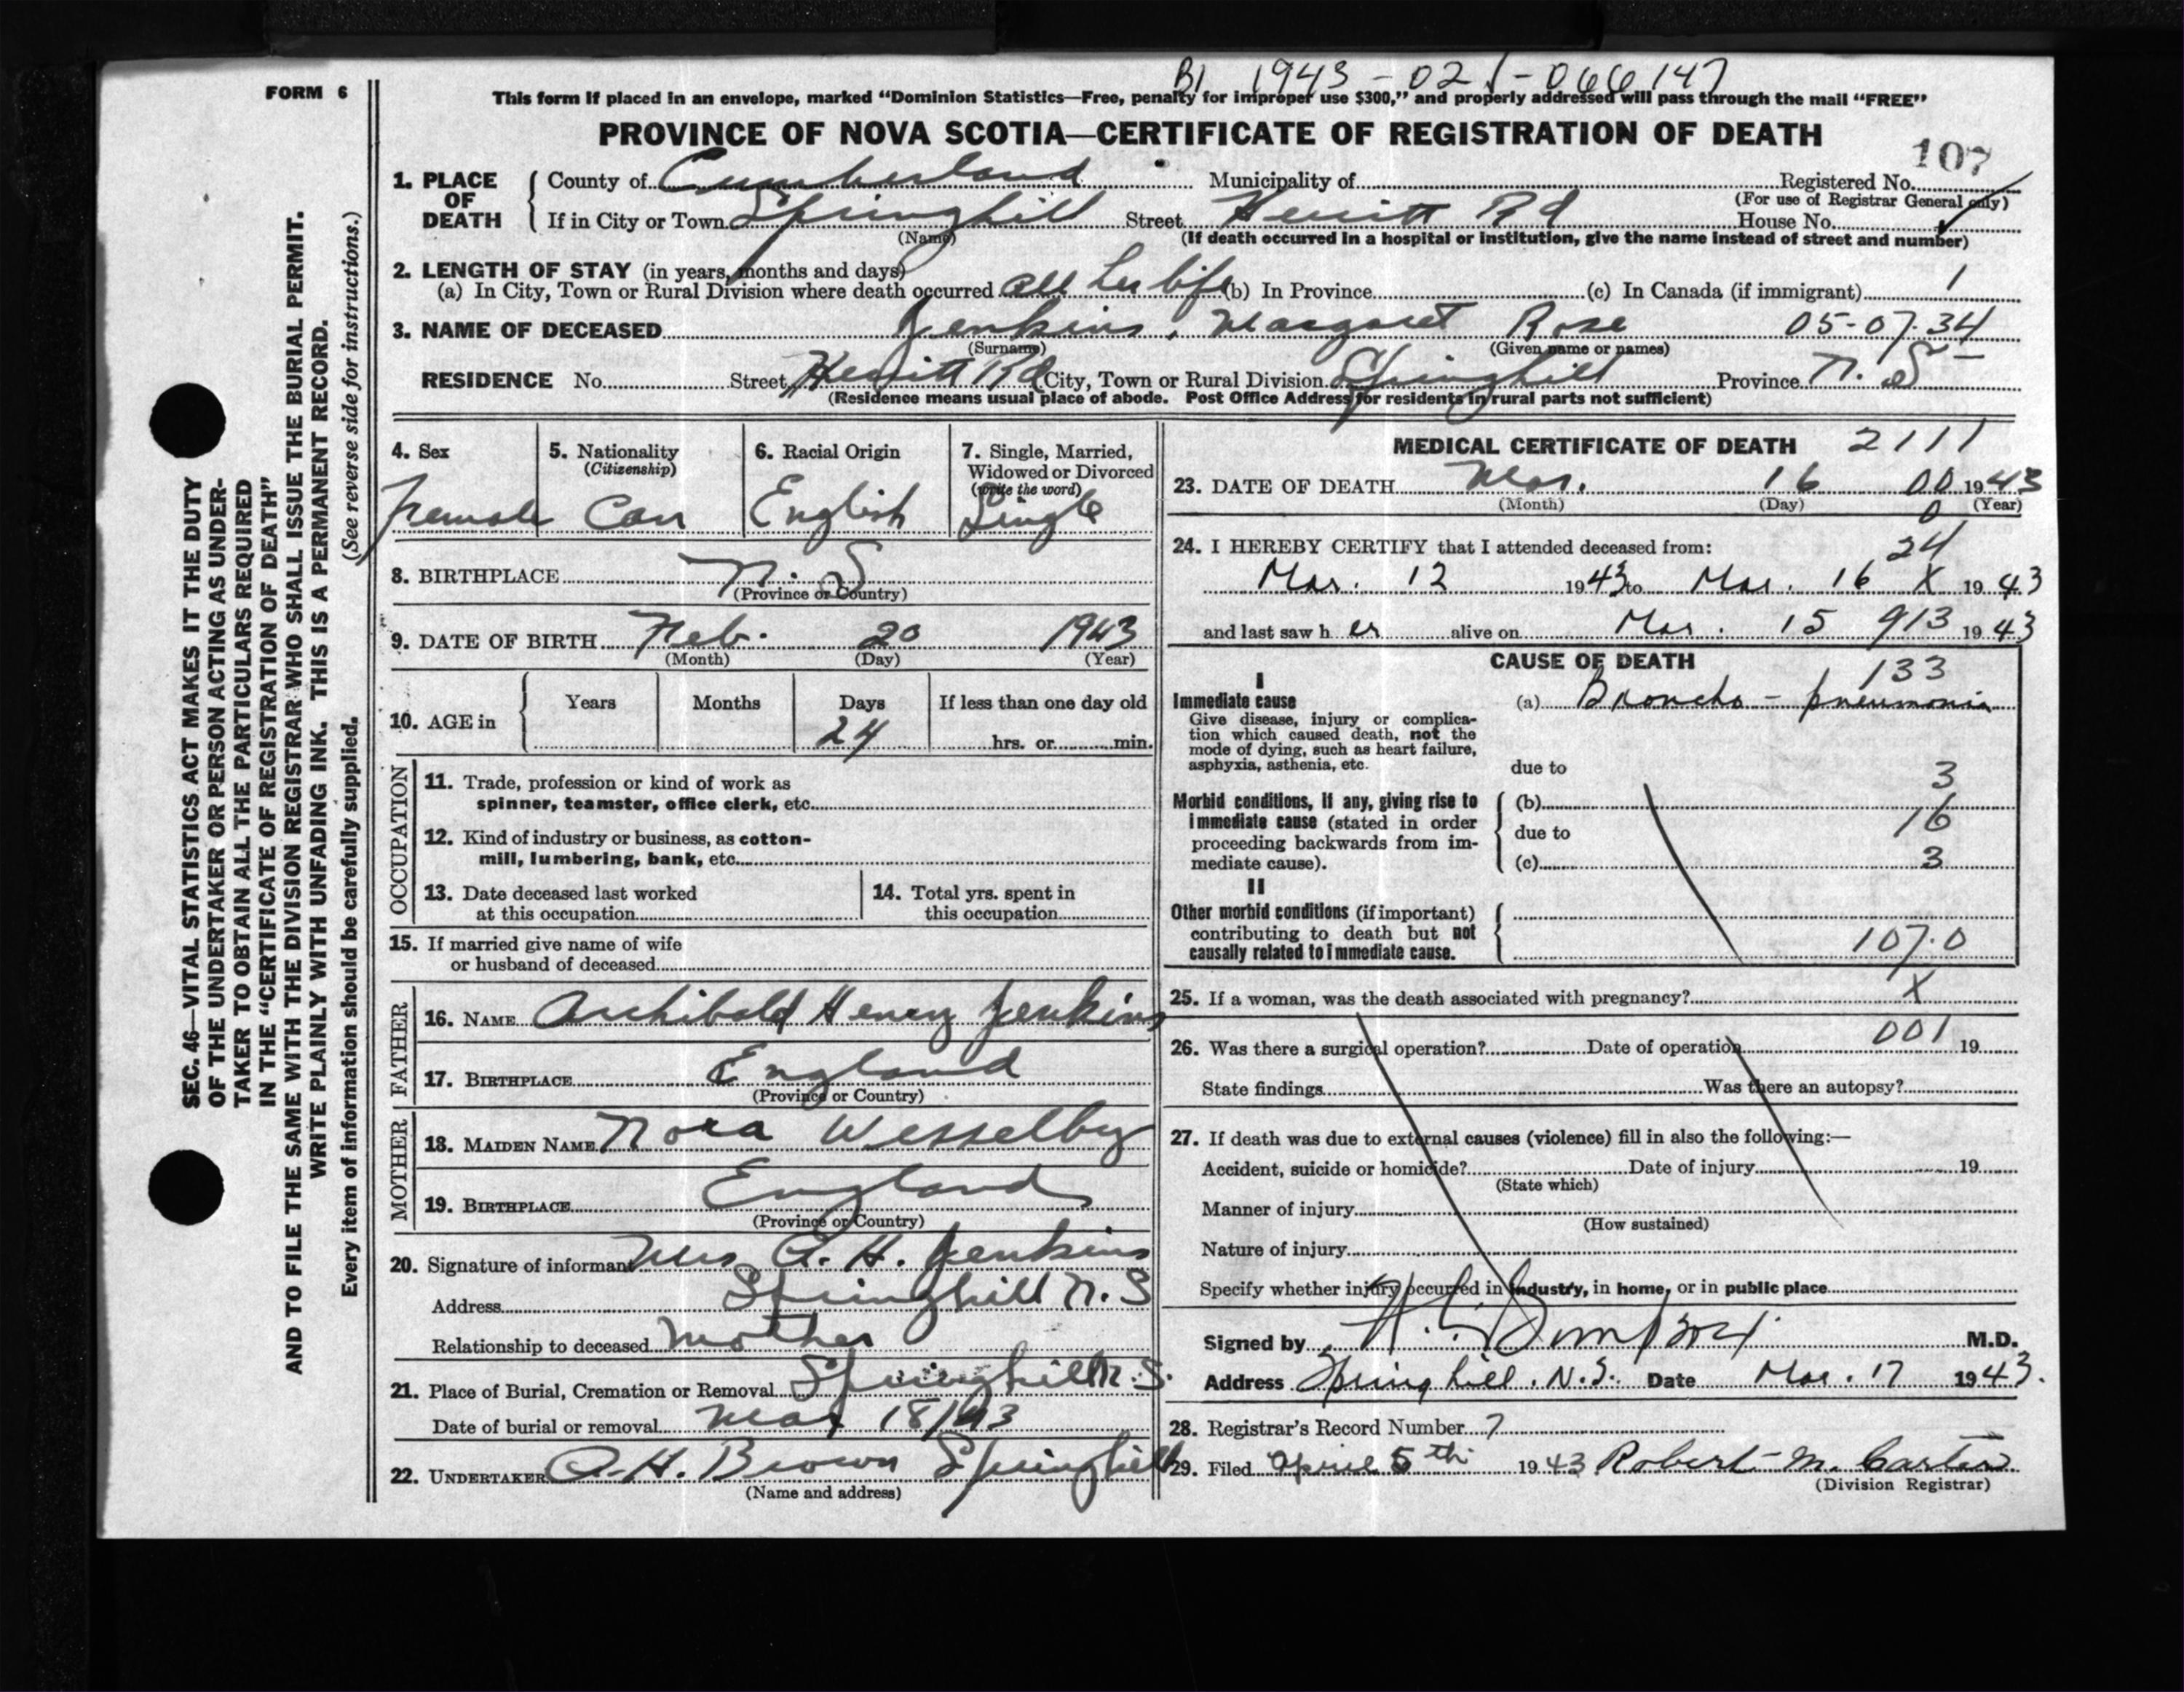 B1 1943-02-066147
FORM 6
This form if placed in an envelope, marked "Dominion Statistics—Free, penalty for improper use $300," and properly addressed will pass through the mail "FREE"
PROVINCE OF NOVA SCOTIA—CERTIFICATE OF REGISTRATION OF DEATH
107
1. PLACE OF DEATH { County of Cumberland Municipality of Registered No.
(For use of Registrar General only)
If in City or Town Springhill Street Hewitt Rd House No.
(Name) (If death occurred in a hospital or institution, give the name instead of street and number)
2. LENGTH OF STAY (in years, months and days)
(a) In City, Town or Rural Division where death occurred all her life (b) In Province (c) In Canada (if immigrant) 1
3. NAME OF DECEASED Jenkins, Margaret Rose 05-07-34
(Surname) (Given name or names)
RESIDENCE No. Street Hewitt Rd City, Town or Rural Division Springhill Province N. S
(Residence means usual place of abode. Post Office Address for residents in rural parts not sufficient)
4. Sex 5. Nationality (Citizenship) 6. Racial Origin 7. Single, Married, Widowed or Divorced (write the word)
Female Can English Single
8. BIRTHPLACE N. S
(Province or Country)
9. DATE OF BIRTH Feb. 20 1943
(Month) (Day) (Year)
10. AGE in { Years Months Days If less than one day old
24 hrs. or min.
OCCUPATION
11. Trade, profession or kind of work as
spinner, teamster, office clerk, etc.
12. Kind of industry or business, as cotton-
mill, lumbering, bank, etc.
13. Date deceased last worked
at this occupation
14. Total yrs. spent in
this occupation
15. If married give name of wife
or husband of deceased
FATHER
16. NAME Archibald Henry Jenkins
17. BIRTHPLACE England
(Province or Country)
MOTHER
18. MAIDEN NAME Nora Wesselby
19. BIRTHPLACE England
(Province or Country)
20. Signature of informant Mrs A. H. Jenkins
Address Springhill N. S
Relationship to deceased Mother
21. Place of Burial, Cremation or Removal Springhill N. S.
Date of burial or removal Mar 18/43
22. UNDERTAKER A. H. Brown Springhill
(Name and address)
MEDICAL CERTIFICATE OF DEATH 2111
23. DATE OF DEATH Mar. 16 00 1943
(Month) (Day) 0 (Year)
24. I HEREBY CERTIFY that I attended deceased from: 24
Mar. 12 1943 to Mar. 16 X 1943
and last saw her alive on Mar. 15 913 1943
CAUSE OF DEATH
133
I
Immediate cause (a) Broncho-pneumonia
Give disease, injury or complica-
tion which caused death, not the
mode of dying, such as heart failure,
asphyxia, asthenia, etc.
due to 3
Morbid conditions, if any, giving rise to { (b)
immediate cause (stated in order due to 16
proceeding backwards from im-
mediate cause). (c) 3
II
Other morbid conditions (if important)
contributing to death but not
causally related to immediate cause. 107.0
25. If a woman, was the death associated with pregnancy? X
26. Was there a surgical operation? Date of operation 001 19
State findings Was there an autopsy?
27. If death was due to external causes (violence) fill in also the following:—
Accident, suicide or homicide? Date of injury 19
(State which)
Manner of injury
(How sustained)
Nature of injury
Specify whether injury occurred in industry, in home, or in public place
Signed by M.D.
Address Springhill. N.S. Date Mar. 17 1943.
28. Registrar's Record Number 7
29. Filed April 5th 1943 Robert M. Carter
(Division Registrar)
SEC. 46—VITAL STATISTICS ACT MAKES IT THE DUTY
OF THE UNDERTAKER OR PERSON ACTING AS UNDER-
TAKER TO OBTAIN ALL THE PARTICULARS REQUIRED
IN THE "CERTIFICATE OF REGISTRATION OF DEATH"
AND TO FILE THE SAME WITH THE DIVISION REGISTRAR WHO SHALL ISSUE THE BURIAL PERMIT.
WRITE PLAINLY WITH UNFADING INK. THIS IS A PERMANENT RECORD.
Every item of information should be carefully supplied. (See reverse side for instructions.)